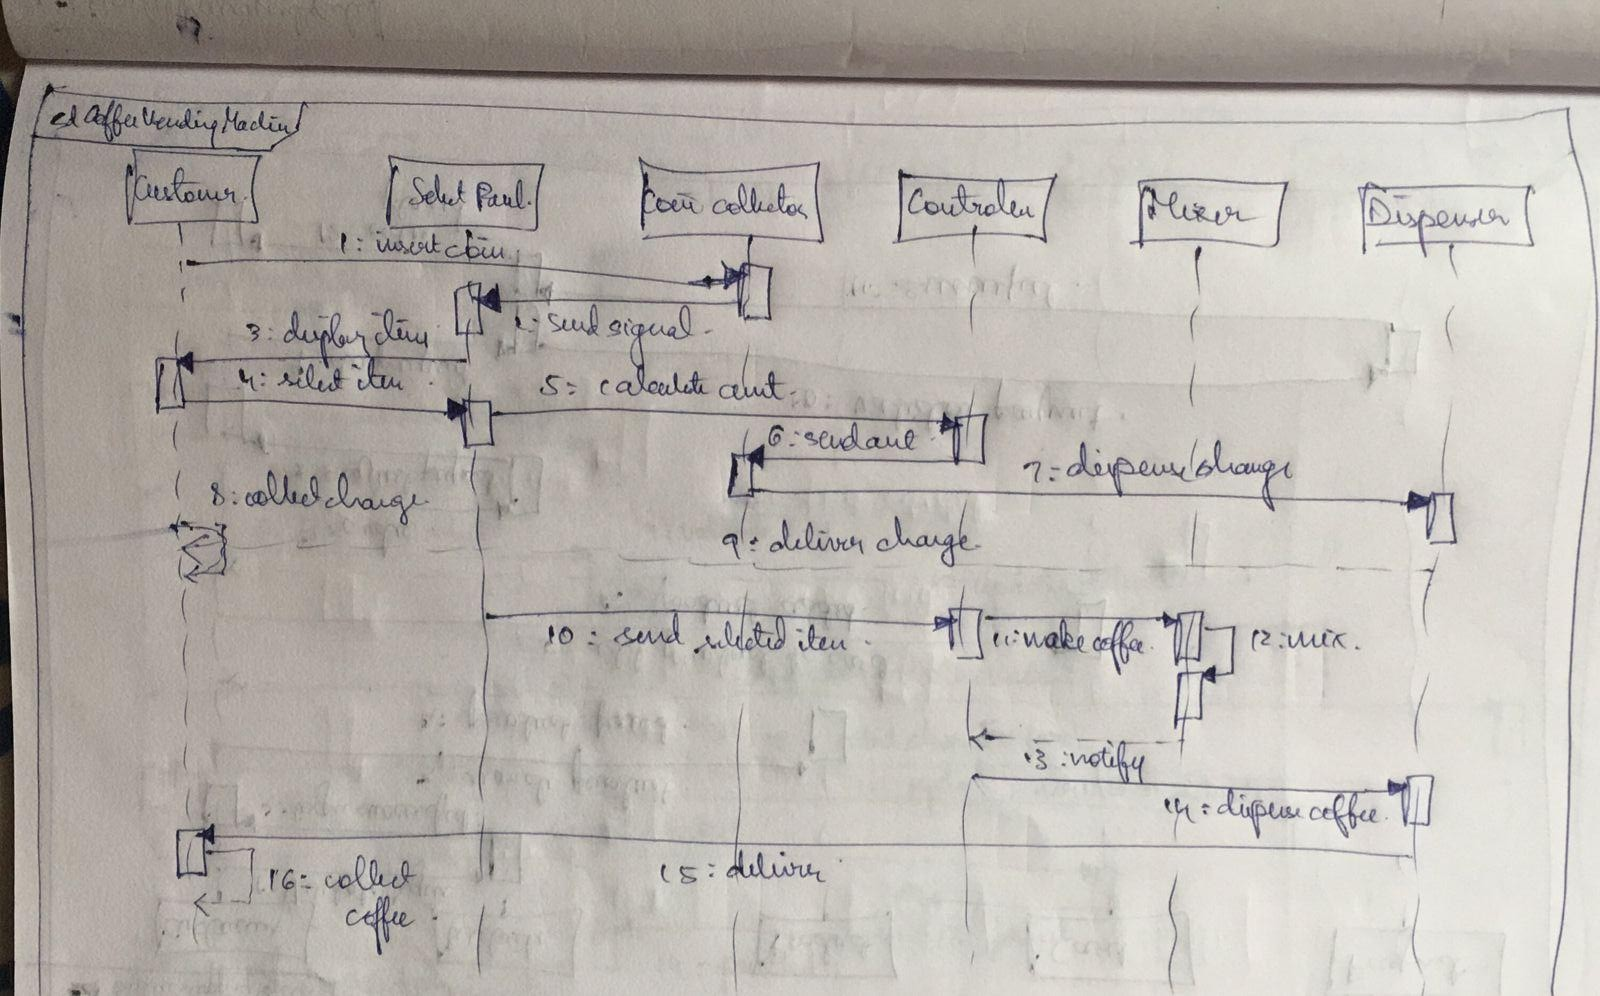 sd CoffeeVendingMachine
Customer. Select Panel. Coin collector Controller Mixer Dispenser
1: insert coin
2: send signal.
3: display item
4: select item
5: calculate amt.
6: send amt
7: dispense change
8: collect change.
9: deliver change.
10: send selected item.
11: make coffee.
12: mix.
13: notify
14: dispense coffee.
15: deliver
16: collect
coffee